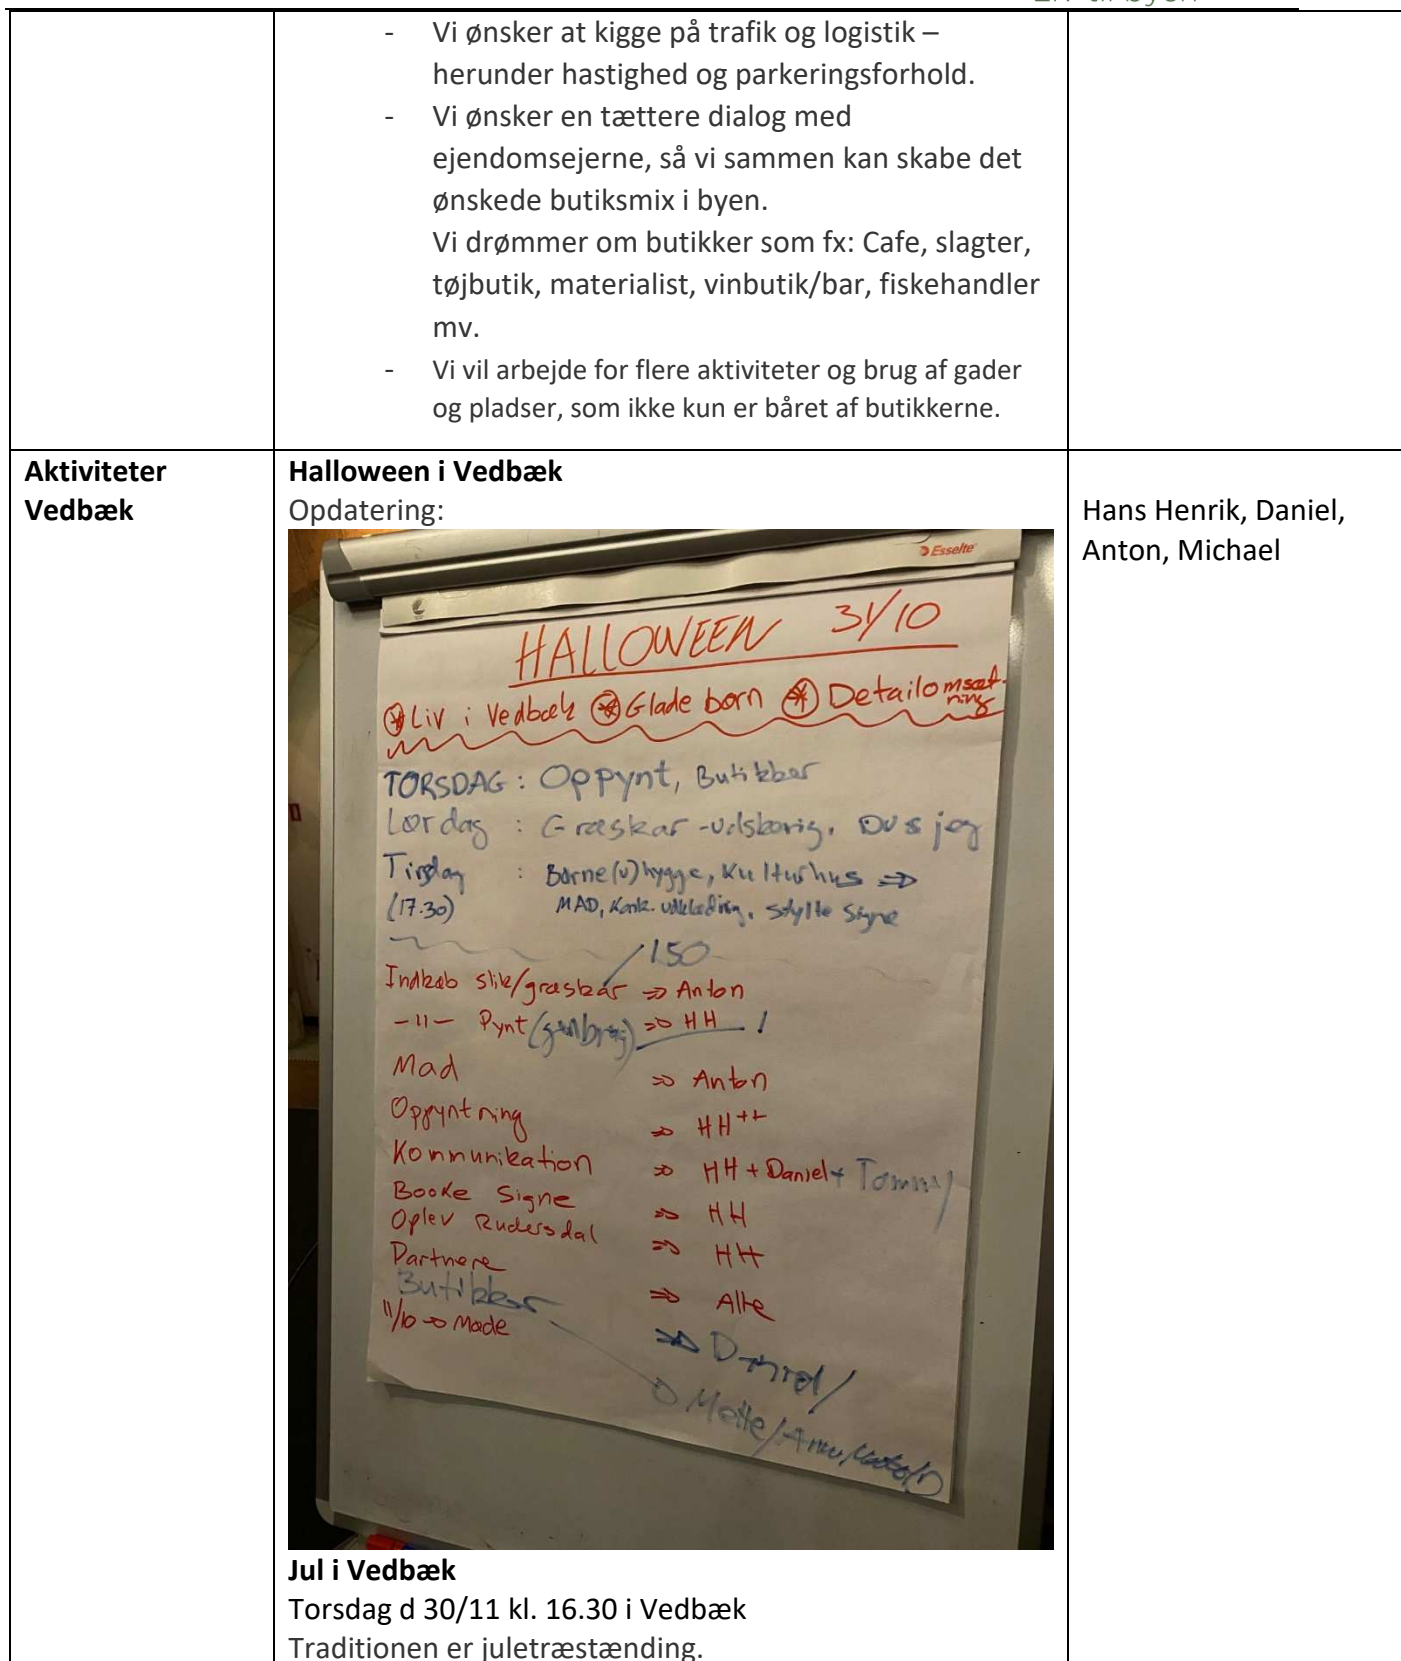 - Vi ønsker at kigge på trafik og logistik –
herunder hastighed og parkeringsforhold.
- Vi ønsker en tættere dialog med
ejendomsejerne, så vi sammen kan skabe det
ønskede butiksmix i byen.
Vi drømmer om butikker som fx: Cafe, slagter,
tøjbutik, materialist, vinbutik/bar, fiskehandler
mv.
- Vi vil arbejde for flere aktiviteter og brug af gader
og pladser, som ikke kun er båret af butikkerne.
Aktiviteter
Vedbæk
Halloween i Vedbæk
Opdatering:
Esselte
HALLOWEEN 31/10
Liv i Vedbæk Glade børn Detailomsæt-
ning
TORSDAG : Oppynt, Butikker
Lørdag : Græskar-udskæring. DUS jeg
Tirsdag : Børne(u)hygge, Kulturhus ⇒
(17.30) MAD, Konk. udklædning, Stylte Signe
150
Indkøb slik/græskar ⇒ Anton
-11- Pynt (genbrug) ⇒ HH !
Mad ⇒ Anton
Oppyntning ⇒ HH++
Kommunikation ⇒ HH + Daniel + Tommy
Booke Signe ⇒ HH
Oplev Rudersdal ⇒ HH
Partnere ⇒ Alle
Butikker ⇒ Daniel/
11/10 → Møde
Mette/
Hans Henrik, Daniel,
Anton, Michael
Jul i Vedbæk
Torsdag d 30/11 kl. 16.30 i Vedbæk
Traditionen er juletræstænding.